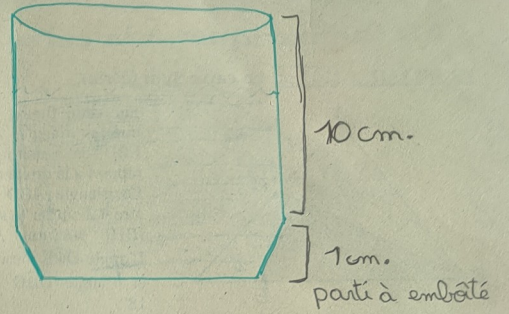 10 cm.
1 cm.
parti à emboîté